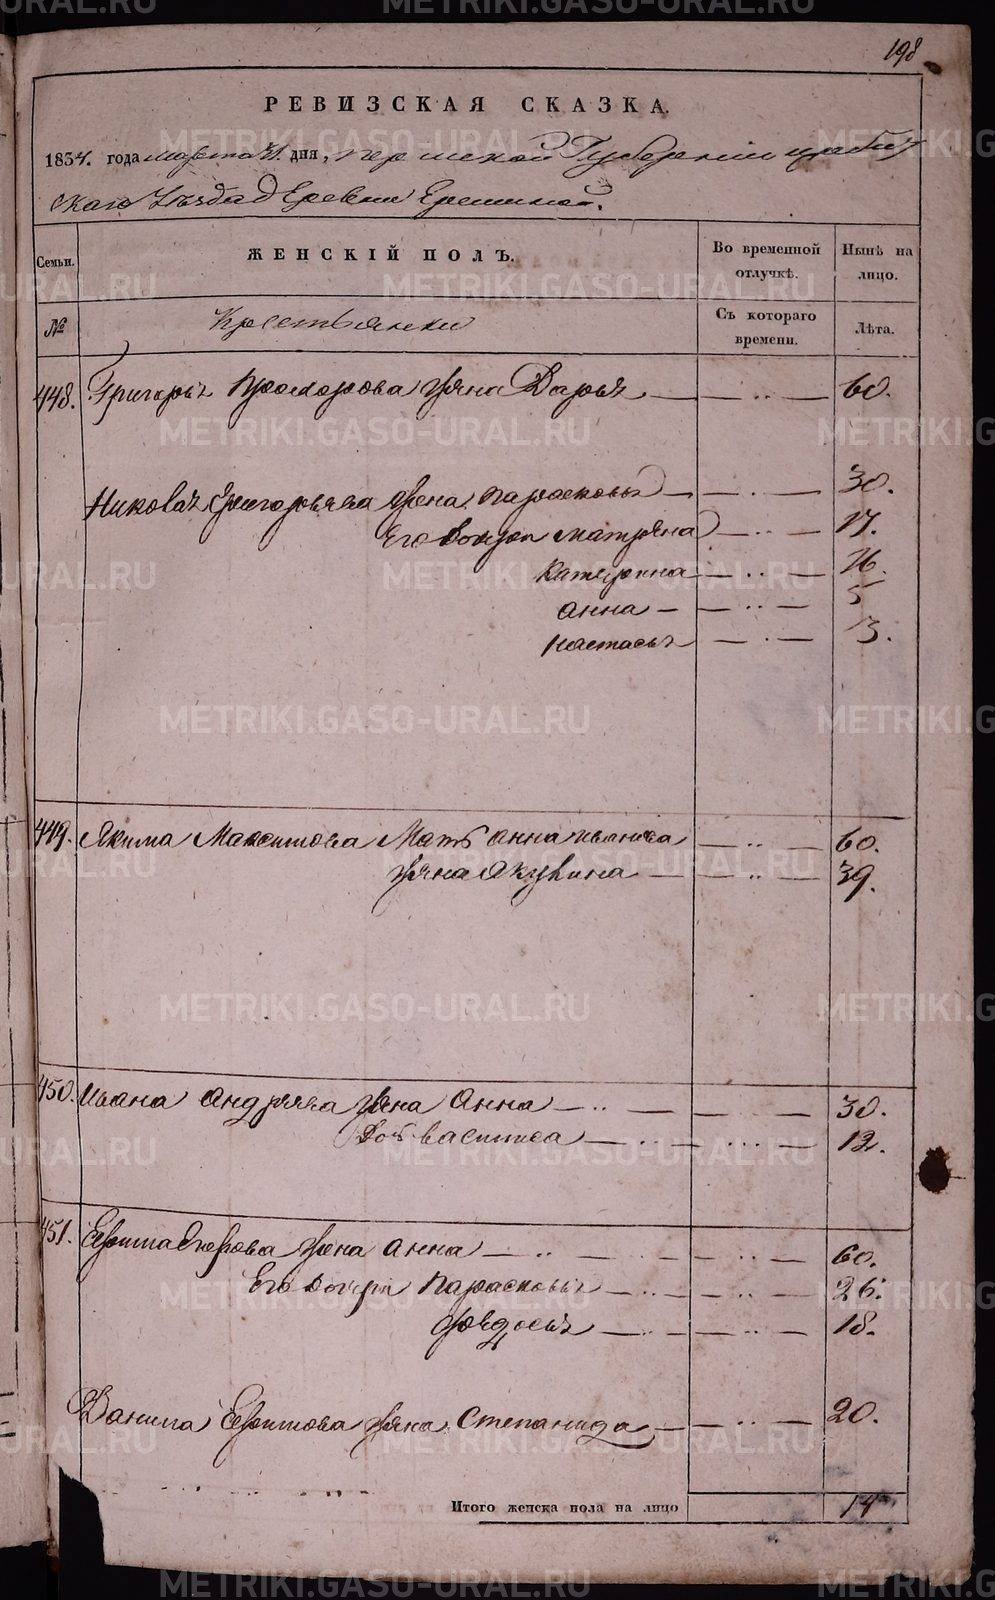 198
РЕВИЗСКАЯ СКАЗКА.
1834. года марта 31. дня, пермской Губернии ирбит
скаго Уезда деревни Ерешиной.
Семьи. ЖЕНСКІЙ ПОЛЪ. Во временной отлучкѣ. Нынѣ на лицо.
№ Крестьянки Съ котораго времени. Лѣта.
448. Григорья Прохорова жена Дарья 60.
Николая Григорьева жена парасковья 30.
Его дочери матрена 17.
Катерина
анна 5
настасья 3.
449. Якима Максимова Мать анна 60.
жена Акулина 39.
450. ивана андреева жена анна 30.
доч василиса 12.
451. Ефима жена анна 60.
Его дочери парасковья 26.
федосья 18.
Данила Ефимова жена степанида 20.
Итого женска пола на лицо 14
METRIKI.GASO-URAL.RU